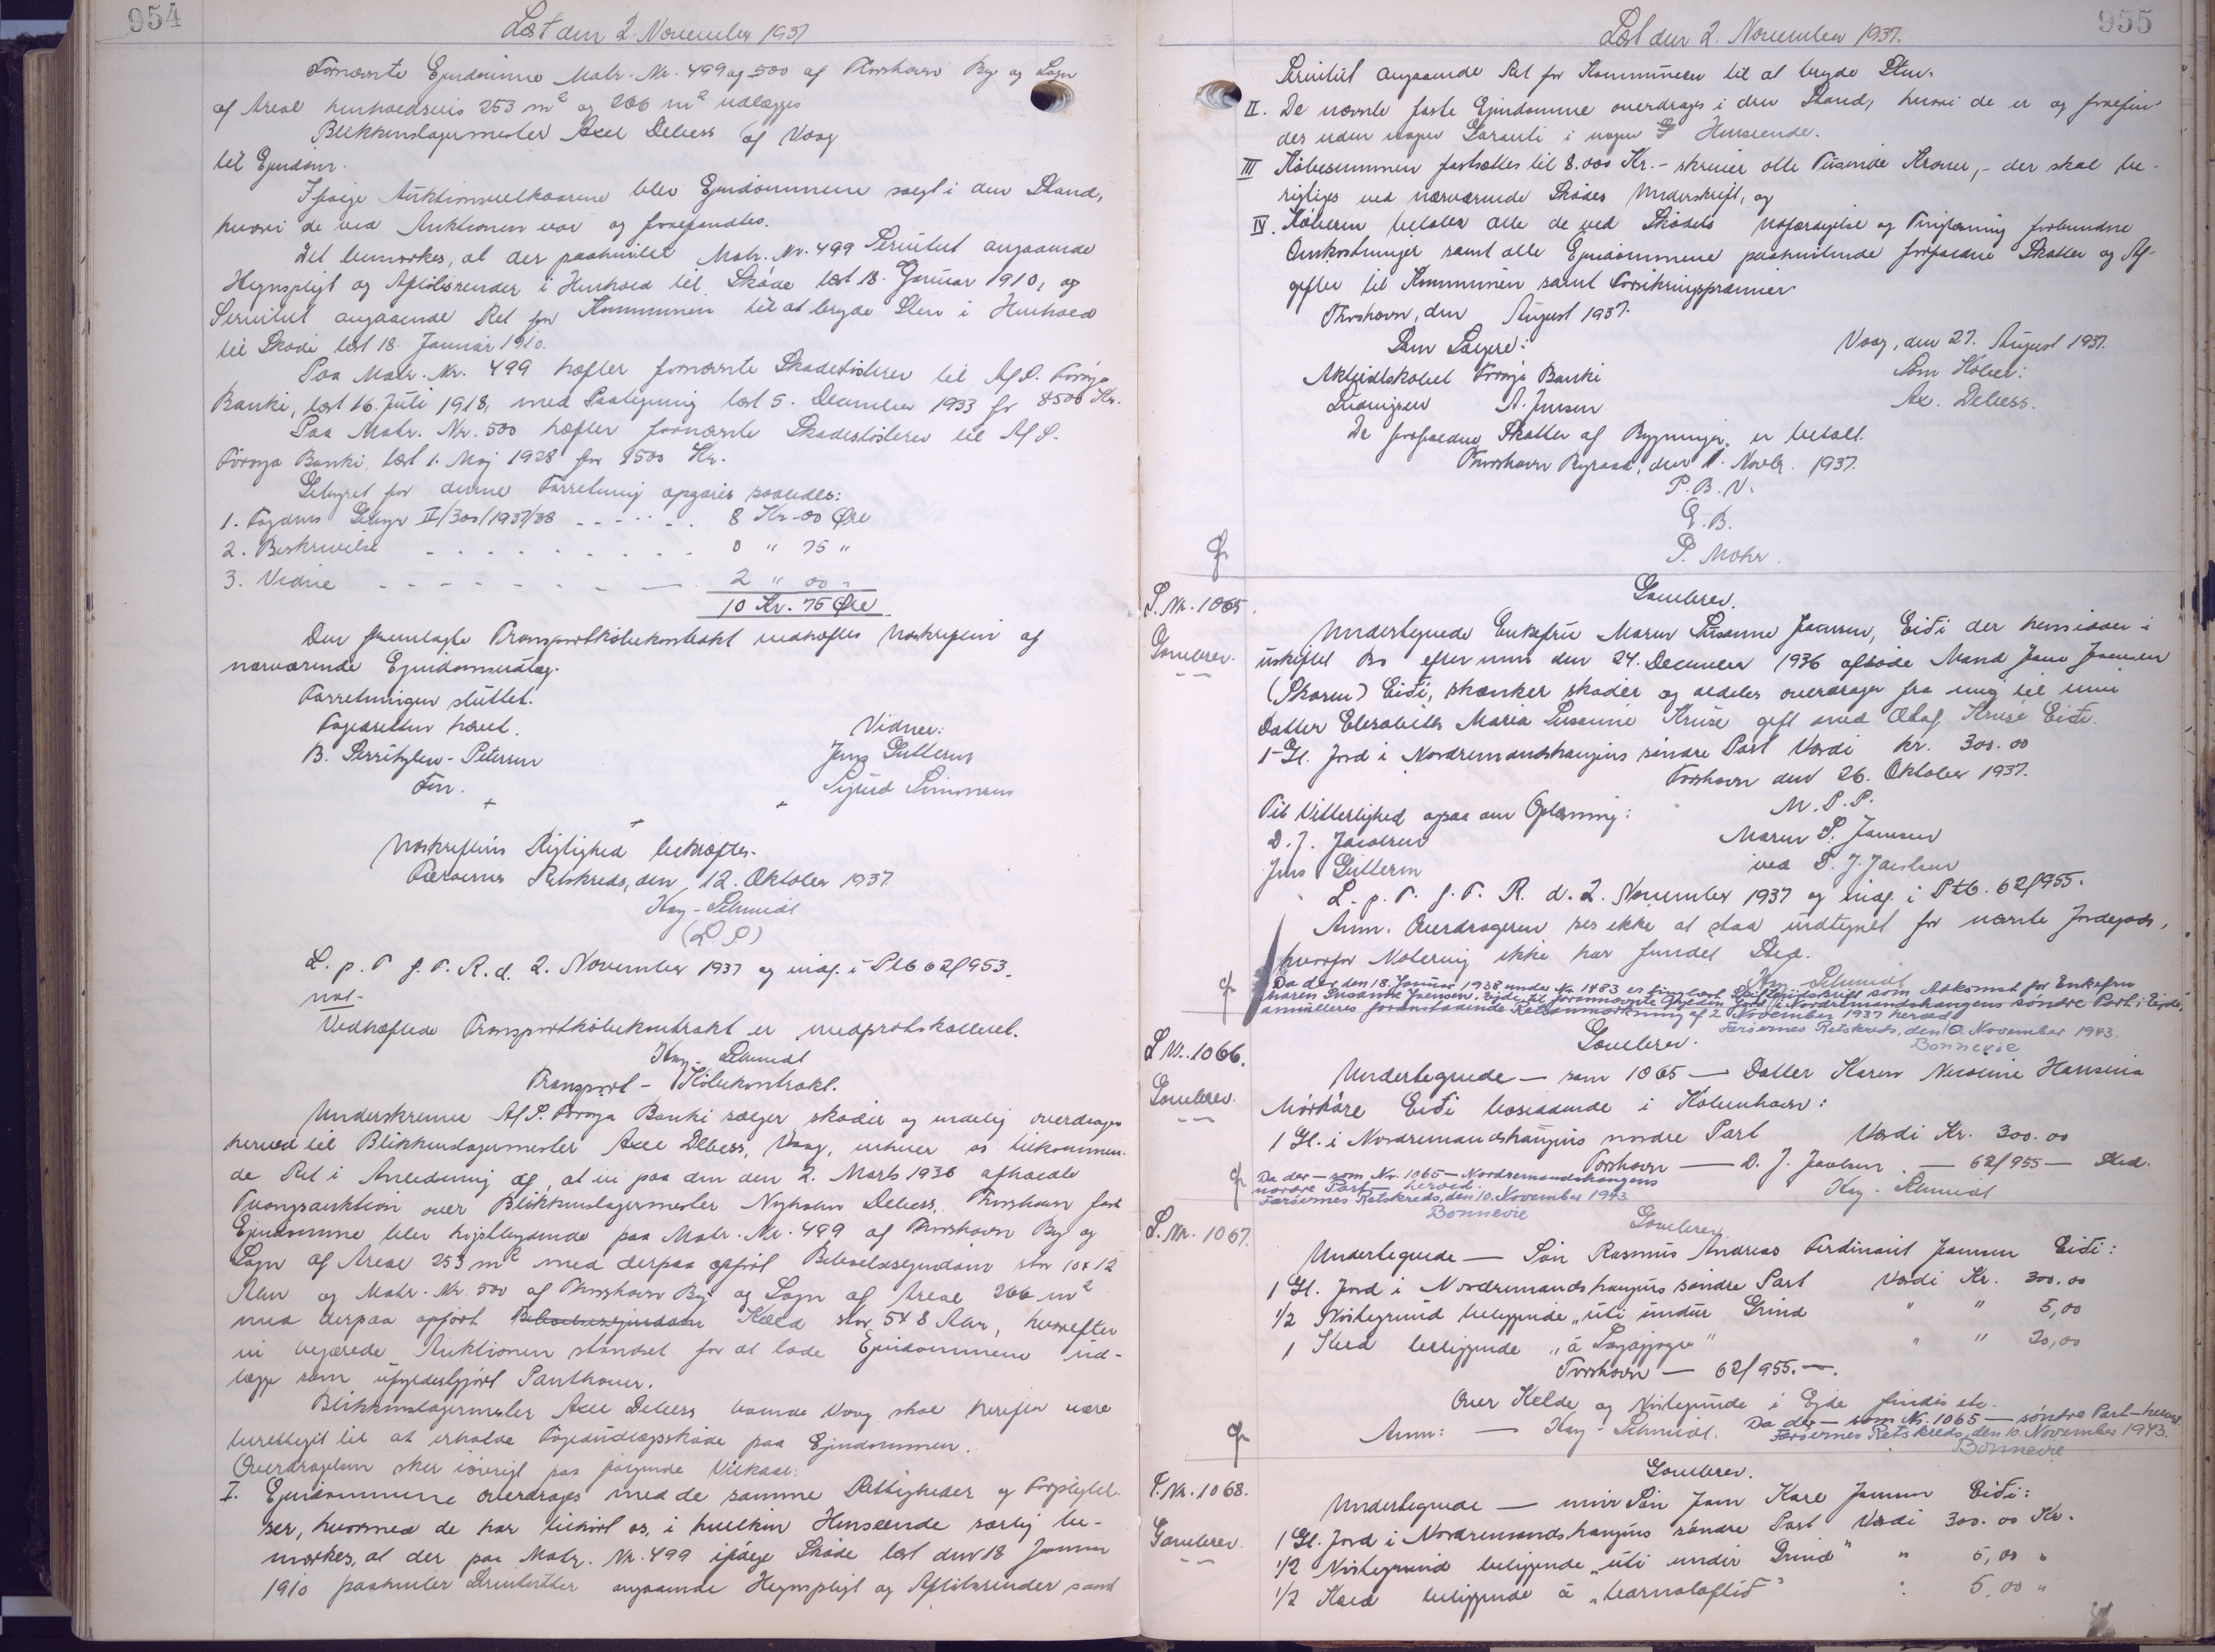 954
Læst den 2. November 1937
Fornævnte Ejendomme Matr. Nr. 499 og 500 af Thorshavn By og Sogn
af Areal henholdsvis 253 m² og 266 m² udlægges
Blikkenslagermester Axel Debess af Vaag
til Ejendom.
Ifølge Auktionsvilkaarene blev Ejendommene solgt i den Stand,
hvori de ved Auktionen var og forefandtes.
Det bemærkes, at der paahviler Matr. Nr. 499 Servitut angaaende
Hegnspligt og Afløbsrender i Henhold til Skøde læst 18. Januar 1910, og
Servitut angaaende Ret for Kommunen til at bryde Sten i Henhold
til Skøde læst 18. Januar 1910.
Paa Matr. Nr. 499 hæfter fornævnte Skadesløsbrev til A/S. Føroya
Banki, læst 16. Juli 1918, med Paategning læst 5. December 1933 for 8500 Kr.
Paa Matr. Nr. 500 hæfter fornævnte Skadesløsbrev til A/S.
Føroya Banki, læst 1. Maj 1928 for 9500 Kr.
Gebyret for denne Forretning opgøres saaledes:
1. Fogdens Gebyr II/300/1937/38 - - - - - 8 Kr. 00 Øre
2. Beskrivelse - - - - - - - - - 0 " 75 "
3. Vidne - - - - - - - - - 2 " 00 "
10 Kr. 75 Øre
Den fremlagte Transportkøbekontrakt vedhæftes Udskriften af
nærværende Ejendomsudlæg.
Forretningen sluttet.
Fogedretten hævet.
B. Serritzlew-Petersen
Fm.
Vidner:
Jens Guttesen
Sigurd Simonsen
Udskriftens Rigtighed bekræftes.
Færøernes Retskreds, den 12. Oktober 1937.
Kay-Schmidt
(L S)
L. p. T. f. F. R. d. 2. November 1937 og indf. i Ptb 62/953.
Vedhæftede Transportkøbekontrakt er medprotokolleret.
Kay-Schmidt
Transport - Købekontrakt.
Underskrevne A/S. Føroya Banki sælger skøder og endelig overdrager
herved til Blikkenslagermester Axel Debess, Vaag, enhver os tilkommen-
de Ret i Anledning af, at vi paa den den 2. Marts 1936 afholdte
Tvangsauktion over Blikkenslagermester Nyholm Debess, Thorshavn faste
Ejendomme blev højstbydende paa Matr. Nr. 499 af Thorshavn By og
Sogn af Areal 253 m² med derpaa opført Beboelsesejendom stor 10 x 12
Alen og Matr. Nr. 500 af Thorshavn By og Sogn af Areal 266 m²
med derpaa opført Beboelsesejendom Kæld stor 5 x 8 Alen, hvorefter
vi begærede Auktionen standset for at lade Ejendommene ud-
lægge som ufyldestgjort Panthaver.
Blikkenslagermester Axel Debess boende Vaag skal herefter være
berettiget til at erholde Fogedudlægsskøde paa Ejendommen.
Overdragelsen sker iøvrigt paa følgende Vilkaar:
I. Ejendommene overdrages med de samme Rettigheder og Forpligtel-
ser, hvormed de har tilhørt os, i hvilken Henseende særlig be-
mærkes, at der paa Matr. Nr. 499 ifølge Skøde læst den 18 Januar
1910 paahviler Servitutter angaaende Hegnspligt og Afløbsrender samt
955
Læst den 2. November 1937.
Servitut angaaende Ret for Kommunen til at bryde Sten.
II. De nævnte faste Ejendomme overdrages i den Stand, hvori de er og forefin-
des uden nogen Garanti i nogen Henseende.
III Købesummen fastsættes til 8.000 Kr. - skriver otte Tusinde Kroner, - der skal be-
rigtiges ved nærværende Skødes Underskrift, og
IV. Køberen betaler alle de ved Skødets Udfærdigelse og Tinglæsning forbundne
Omkostninger samt alle Ejendommene paahvilende forfaldne Skatter og Af-
gifter til Kommunen samt Forsikringspræmier
Thorshavn, den August 1937.
Som Sælgere:
Vaag, den 27. August 1937.
Aktieselskabet Føroya Banki
Som Køber:
A. Jensen
Ax. Debess.
De forfaldne Skatter af Bygninger er betalt.
Thorshavn Byraad, den 1. Novbr. 1937.
P. B. V.
E. B.
P. Mohr.
Gavebrev.
S. Nr. 1065.
Gavebrev.
Undertegnede Enkefru Maren Susanne Joensen, Eiði der hensidder i
uskiftet Bo efter min den 24. December 1936 afdøde Mand Joen Joensen
(Skoren) Eiði, skænker skøder og aldeles overdrager fra mig til min
Datter Elisabeth Maria Susanne Kruse gift med Olaf Kruse Eiði.
1 Gl. Jord i Nordremandshaugens søndre Part Værdi Kr. 300.00
Torshavn den 26. Oktober 1937.
Til Vitterlighed ogsaa om Oplæsning:
M. P. P.
D. J. Jacobsen
Maren S. Joensen
Jens Guttesen
ved D. J. Jacobsen
L. p. T. f. F. R. d. 2. November 1937 og indf. i Ptb. 62/955.
Anm. Overdrageren ses ikke at staa indtegnet for nævnte Jordegods,
hvorfor Notering ikke har fundet Sted.
Kay-Schmidt
Da der den 18. Januar 1938 under Nr. 1483 er tinglæst Skifteudskrift som Adkomst for Enkefru
Maren Susanne Joensen, Eide, til forannævnte Gylden Jord i Nordremandshaugens søndre Part i Ejde,
annulleres foranstaaende Retsanmærkning af 2. November 1937 herved
Færøernes Retskreds, den 10. November 1943.
Bonnevie
Gavebrev.
S. Nr. 1066.
Gavebrev.
Undertegnede — som 1065 — Datter Karen Nicoline Hansina
Mørkøre Eiði bosiddende i København:
1 Gl. i Nordremandshaugens nordre Part Værdi Kr. 300.00
Torshavn — D. J. Jacobsen. — 62/955 — Sted.
Kay-Schmidt
Da der — som Nr. 1065 — Nordremandshaugens
nordre Part — herved.
Færøernes Retskreds, den 10. November 1943
Bonnevie
Gavebrev.
S. Nr. 1067.
Undertegnede — Søn Rasmus Andreas Ferdinant Joensen Eiði:
1 Gl. Jord i Nordremandshaugens søndre Part Værdi Kr. 300.00
1/2 Nøstegrund beliggende "uti undir Grind " " 5,00
1 Kæld beliggende " " 20,00
Torshavn — 62/955. —.
Over Kelde og Nøstegrunde i Ejde findes etc.
Anm: — Kay-Schmidt.
Da der — som Nr. 1065 — søndre Part — herved.
Færøernes Retskreds, den 10. November 1943.
Bonnevie
Gavebrev.
S. Nr. 1068.
Gavebrev.
Undertegnede — min Søn Joen Kare Joensen Eiði:
1 Gl. Jord i Nordremandshaugens søndre Part Værdi 300.00 Kr.
1/2 Nøstegrund beliggende "uti undir Grind" " 5,00 "
1/2 Kæld beliggende á " 5.00 "